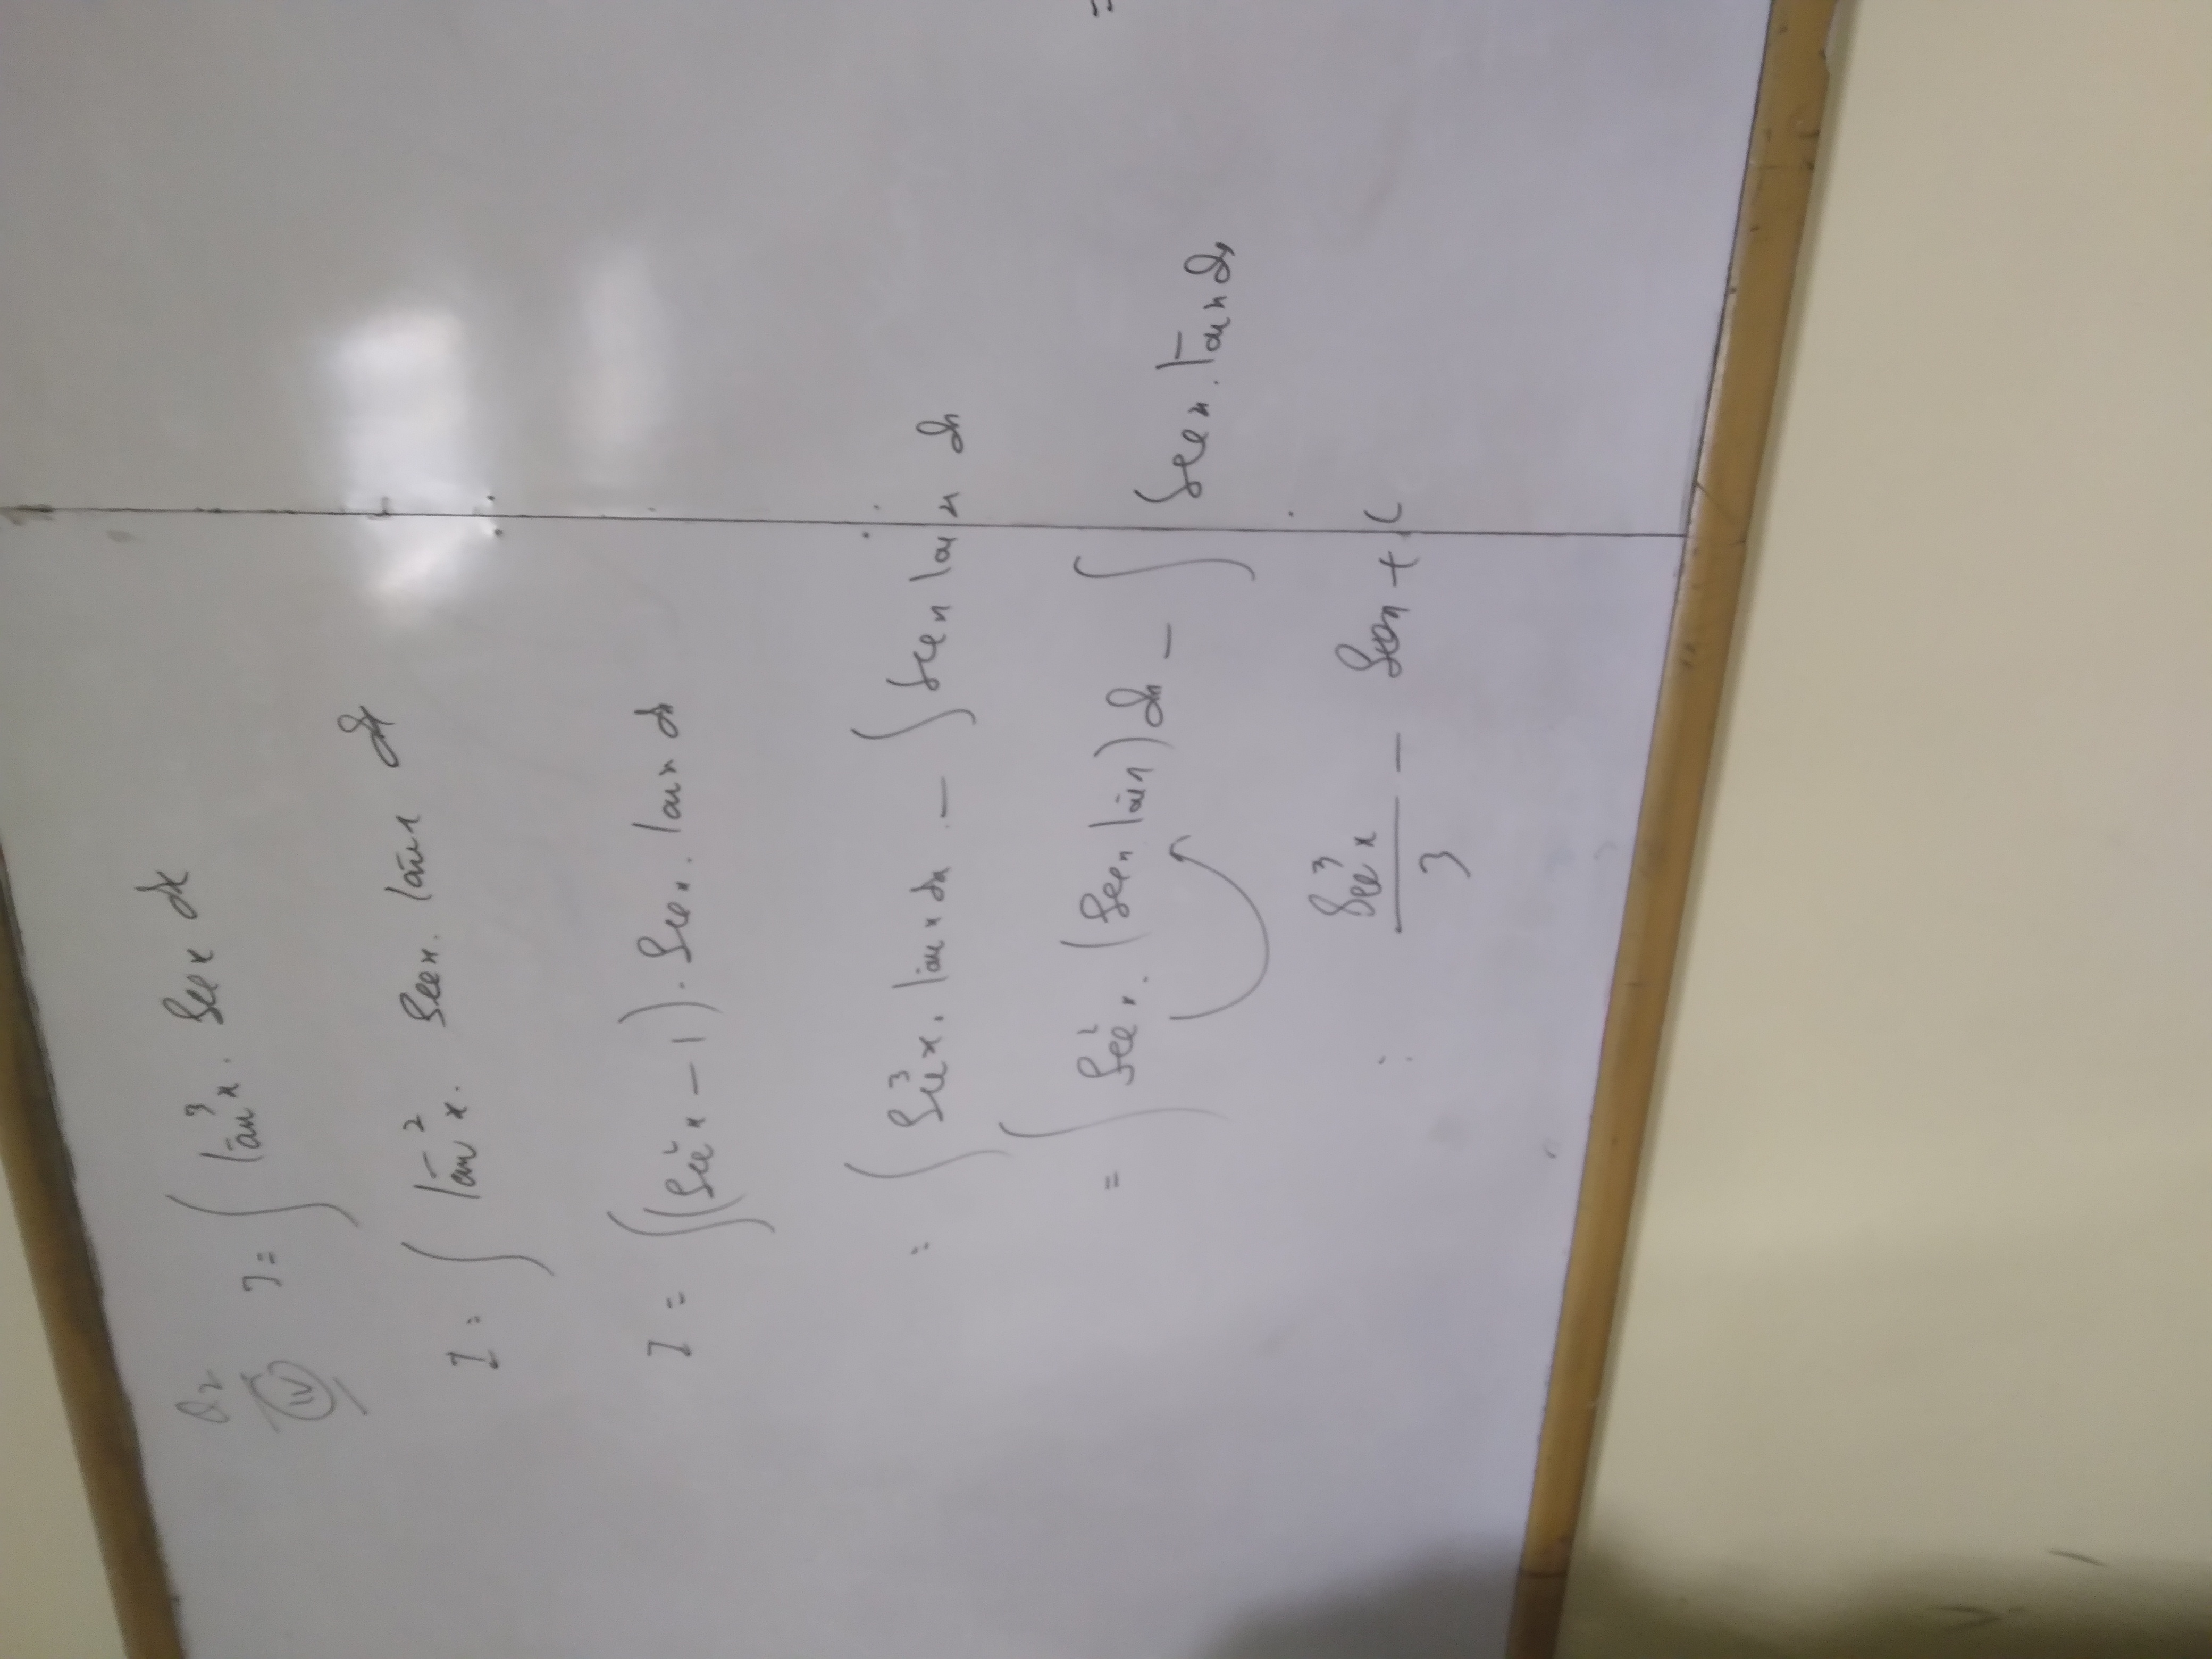 Q2
(iv) I = ∫ tan³x . Sec x dx
I = ∫ tan²x . Sec x . tan x dx
I = ∫(Sec²x − 1) . Sec x . tan x dx
: ∫ Sec³x . tan x dx − ∫ Sec x tan x dx
= ∫ Sec²x . (Sec x tan x) dx − ∫ Sec x . tan x dx =
: Sec³x / 3 − Sec x + C